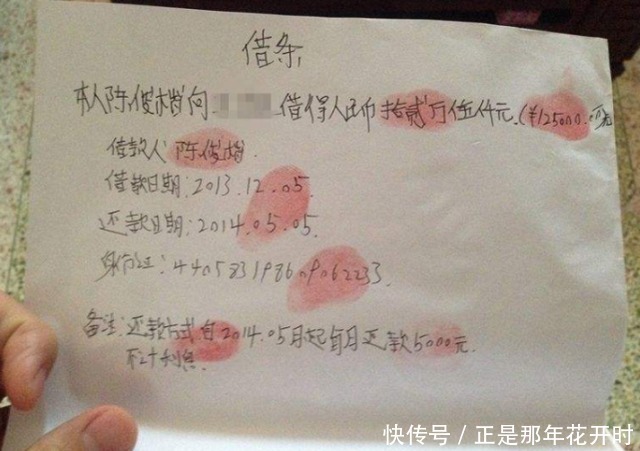 借条
本人陈俊楷向 借得人民币拾贰万伍仟元.(¥125000.
借款人 陈俊楷.
借款日期:2013.12.05
还款日期:2014.05.05.
身份证:440583198609062233.
备注:还款方式自2014.05月起每月还款5000元.
不计利息
快传号/正是那年花开时